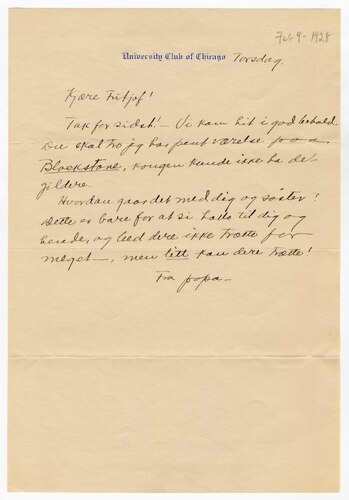 Feb 9 - 1928
University Club of Chicago Torsdag
Kjære Fritjof!
Tak for sidst! - Vi kam hit i god behold.
Du skal tro jeg har pent værelse paa
Blackstone, kongen kunde ikke ha det
gildere.
Hvordan gaar det med dig og søster?
Dette er bare for at si hallo til dig og
hende, og bed dere ikke trætte for
meget -, men litt kan dere trætte!
Fra popa -